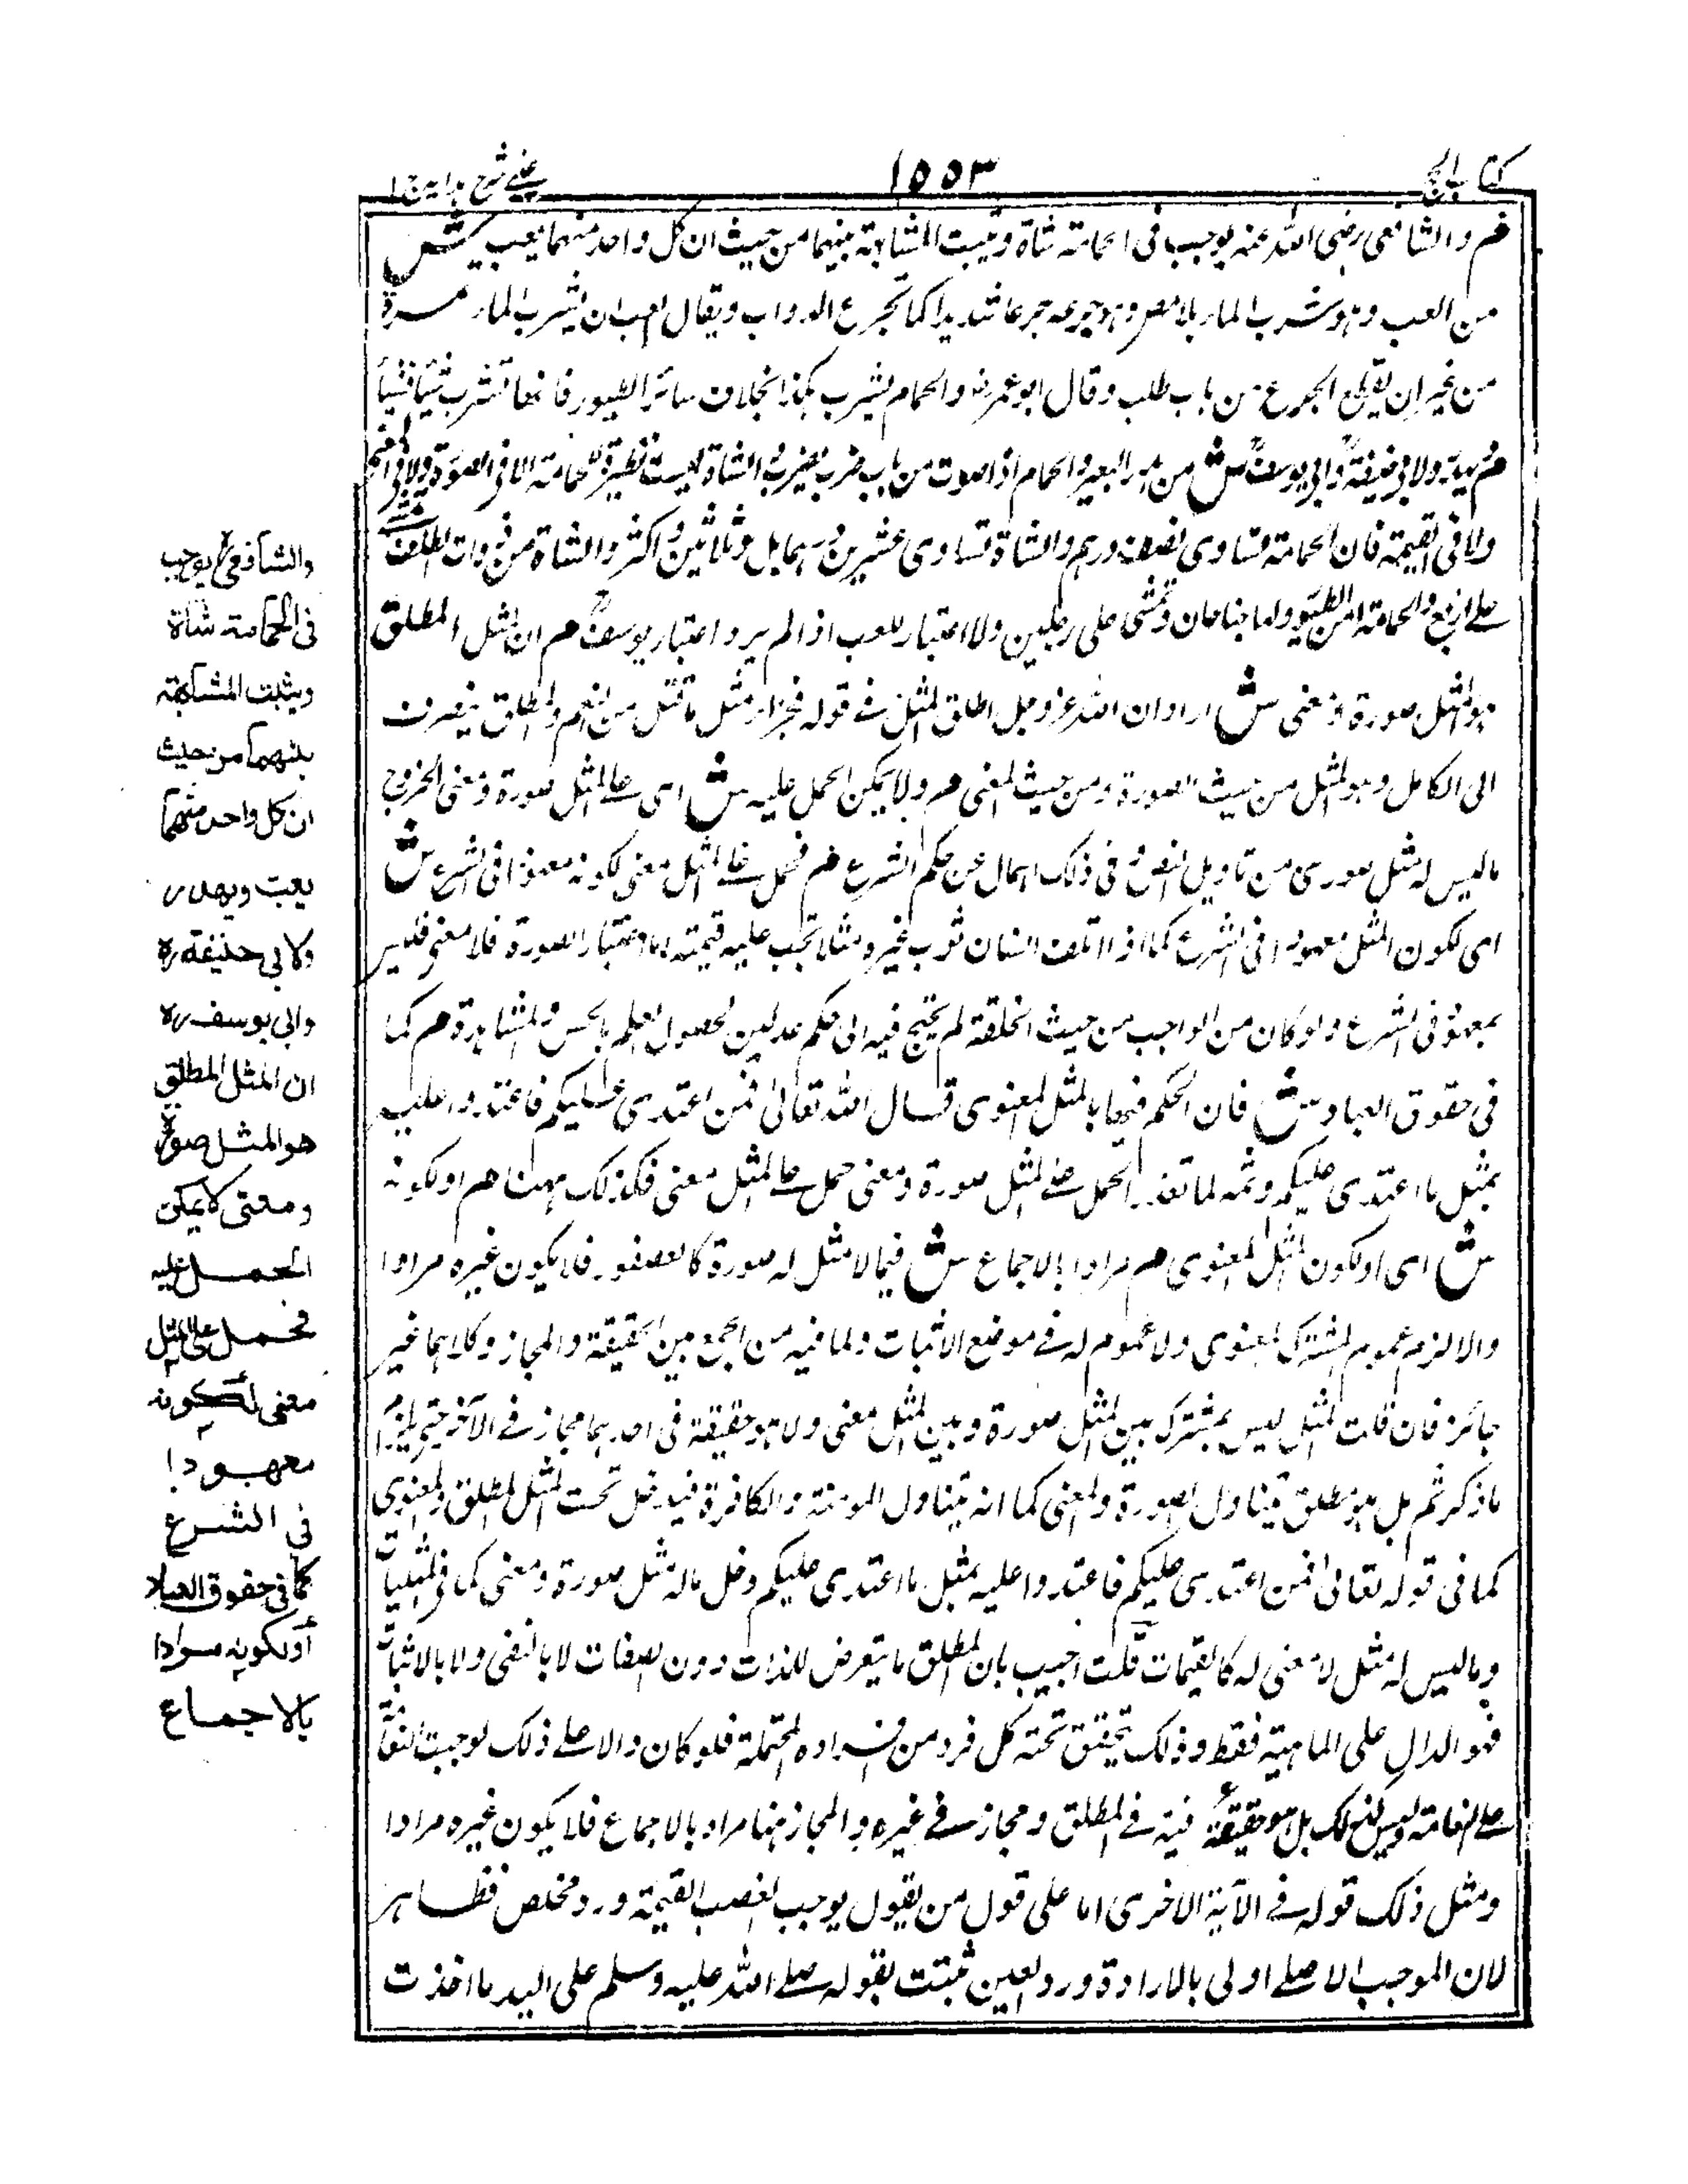 كتاب الحج
١٥٥٣
عيني شرح هداية ج ١
م والشافعي رضي الله عنه يوجب في الحمامة شاة ويثبت المشابهة بينهما من حيث ان كل واحد منهما يعب ش
من العب وهو شرب الماء بلا مص وهو جرعه جرعا شديدا كما تجرع الدواب ويقال العب ان يشرب الماء مرة
من غير ان يقطع الجرع من باب طلب وقال ابو عمرو والحمام يشرب هكذا بخلاف سائر الطيور فانها تشرب شيئا فشيئا
م ويهدر ولابي حنيفة وابي يوسف ش من هدر البعير والحمام اذا صوت من باب ضرب يضرب والشاة ليست نظيرة للحمامة الا في الصورة ولا في المعنى
ولا في القيمة فان الحمامة تساوي نصف درهم والشاة تساوي عشرين وثلاثين واكثر والشاة من ذوات الظلف
على اربع والحمامة من الطيور ولها جناحان وتمشي على رجلين ولا اعتبار للعب اذا لم يرد اعتبار يوسف م ان المثل المطلق
هو المثل صورة ومعنى ش اراد ان الله عز وجل اطلق المثل في قوله فجزاء مثل ما قتل من النعم والمطلق ينصرف
الى الكامل وهو المثل من حيث الصورة ومن حيث المعنى م ولا يمكن الحمل عليه ش اي على المثل صورة ومعنى لخروج
ما ليس له مثل صوري من تاويل النص وفي ذلك اهمال عن حكم الشرع م فحمل على المثل معنى لكونه معهودا في الشرع ش
اي لكون المثل معهودا في الشرع كما اذا اتلف انسان ثوب غيره مثلا تجب عليه قيمته اما اعتبار الصورة فلا معنى فليس
بمعهود في الشرع ولو كان من الواجب من حيث الخلقة لم يحتج فيه الى حكم عدلين لحصول العلم بالحس والمشاهدة م كما
في حقوق العباد ش فان الحكم فيها بالمثل المعنوي قال الله تعالى فمن اعتدى عليكم فاعتدوا عليه
بمثل ما اعتدى عليكم وثمه لما تعذر الحمل على المثل صورة ومعنى حمل على المثل معنى فكذلك ههنا م او لكونه
ش اي او لكون المثل المعنوي م مرادا بالاجماع ش فيما لا مثل له صورة كالعصفور فلا يكون غيره مرادا
والا لزم عموم المشترك المعنوي ولا عموم له في موضع الاثبات ولما فيه من الجمع بين الحقيقة والمجاز وكلاهما غير
جائز فان قلت المثل ليس بمشترك بين المثل صورة وبين المثل معنى ولا هو حقيقة في احدهما مجاز في الآخر حتى يلزم
ما ذكر ثم بل هو مطلق يتناول الصورة والمعنى كما انه يتناول المؤمنة والكافرة فيدخل تحت المثل المطلق والمعنوي
كما في قوله تعالى فمن اعتدى عليكم فاعتدوا عليه بمثل ما اعتدى عليكم دخل ما له مثل صورة ومعنى كما في المثليات
وما ليس له مثل لا معنى له كالقيميات قلت اجيب بان المطلق ما يتعرض للذات دون الصفات لا بالنفي ولا بالاثبات
فهو الدال على الماهية فقط وذلك يتحقق تحته كل فرد من افراده المحتملة فلو كان دالا على ذلك لوجبت
على النعامة وليس كذلك بل هو حقيقة فيه في المطلق ومجاز في غيره والمجاز ههنا مراد بالاجماع فلا يكون غيره مرادا
ومثل ذلك قوله في الآية الاخرى اما على قول من يقول يوجب الغصب القيمة ورد مخلص فظاهر
لان الموجب الاصلي اولى بالارادة ورد العين ثبتت بقوله صلى الله عليه وسلم على اليد ما اخذت
والشافعي يوجب
في الحمامة شاة
ويثبت المشابهة
بينهما من حيث
ان كل واحد منهما
يعب ويهدر
ولابي حنيفة ره
وابي يوسف ره
ان المثل المطلق
هو المثل صورة
ومعنى لا يمكن
الحمل عليه
فحمل على المثل
معنى لكونه
معهودا
في الشرع
كما في حقوق العباد
أو لكونه مرادا
بالاجماع